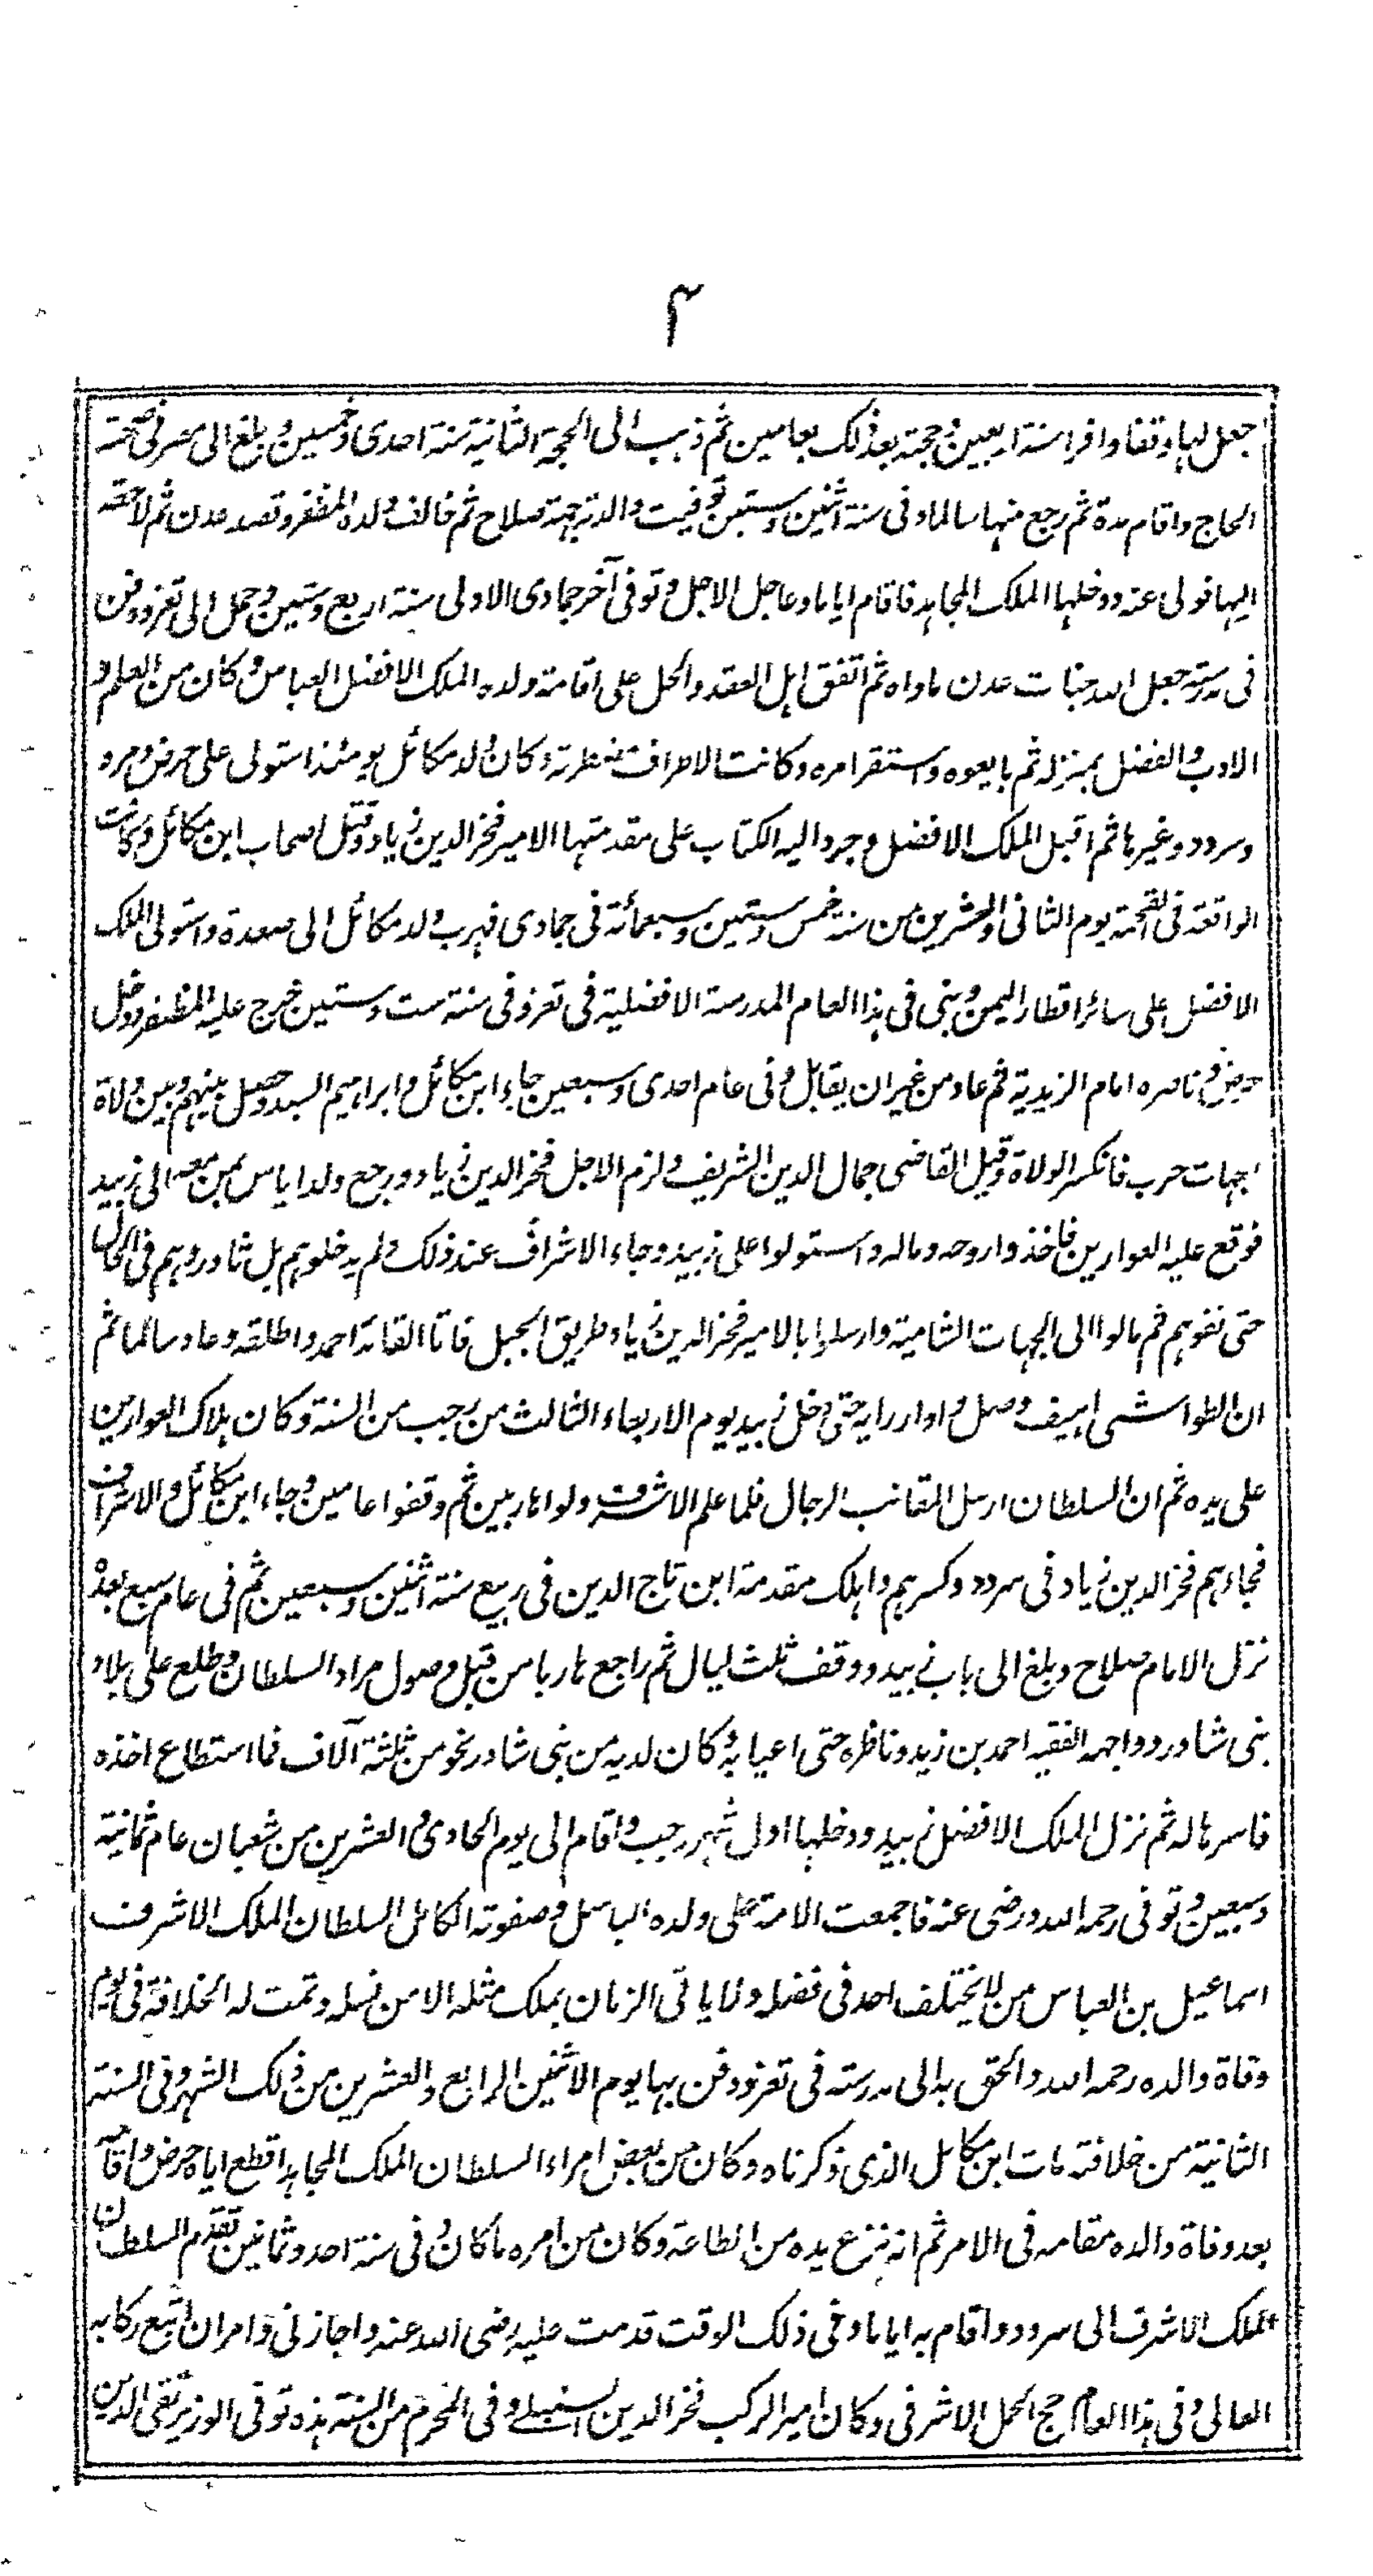 ۴
جعل لها وقفا وافرا سنة اربعين وحجته بعد ذلك بعامين ثم ذهب الى الحجة الثانية سنة احدى وخمسين وبلغ الى مصر فى صحبته
الحاج واقام مدة ثم رجع منها سالما وفى سنة اثنين وستين توفيت والدته جهة صلاح ثم خالف ولده المظفر وقصد عدن ثم لاحقه
اليها فولى عنه ودخلها الملك المجاهد فاقام اياما وعاجل الاجل وتوفى آخر جمادى الاولى سنة اربع وستين وحمل الى تعز ودفن
فى مدرسته جعل الله جنات عدن ماواه ثم اتفق اهل العقد والحل على اقامة ولده الملك الافضل العباس وكان من العلم و
الادب والفضل بمنزلة ثم بايعوه واستقر امره وكانت الاطراف مضطربة وكان ولد مكائل يومئذ استولى على حرض ومرو
وسردد وغيرها ثم اقبل الملك الافضل وجرد اليه الكتاب على مقدمتها الامير فخر الدين زياد وقتل اصحاب ابن مكائل وكانت
الواقعة فى القحمة يوم الثانى والعشرين من سنة خمس وستين وسبعمائة فى جمادى فهرب ولد مكائل الى صعدة واستولى الملك
الافضل على سائر اقطار اليمن وبنى فى هذا العام المدرسة الافضلية فى تعز وفى سنة ست وستين خرج عليه المظفر ودخل
حرض وناصره امام الزيدية ثم عاد من غير ان يقابل وفى عام احدى وسبعين جاء ابن مكائل وابراهيم السيد وحصل بينهم وبين ولاة
الجهات حرب فانكسر الولاة وقبل القاضى جمال الدين الشريف ولزم الاجل فخر الدين زياد ورجع ولد اياس بمن معه الى زبيد
فوقع عليه العوارين فاخذوا روحه وماله واستولوا على زبيد وجاء الاشراف عند ذلك ولم يدخلوهم بل ثاوروهم فى الحال
حتى نفوهم ثم مالوا الى الجهات الشامية وارسلوا بالامير فخر الدين زياد طريق الجبل فاتا القائد احمد واطلقه وعاد سالما ثم
ان الطواشى اهيف وصل وادار رايه حتى دخل زبيد يوم الاربعاء الثالث من رجب من السنة وكان هلاك العوارين
على يده ثم ان السلطان ارسل المقانب الرجال فلما علم الاشراف ولوا هاربين ثم وقفوا عامين وجاء ابن مكائل والاشراف
فجاءهم فخر الدين زياد فى سردد وكسرهم واهلك مقدمة ابن تاج الدين فى ربيع سنة اثنين وسبعين ثم فى عام سبع بعده
نزل الامام صلاح وبلغ الى باب زبيد ووقف ثلث ليال ثم راجع هاربا من قبل وصول مراد السلطان وطلع على بلاد
بنى شاور وواجهه الفقيه احمد بن زيد وناظره حتى اعيا به وكان لديه من بنى شاور نحو من ثلثة آلاف فما استطاع اخذه
فاسرها له ثم نزل الملك الافضل زبيد ودخلها اول شهر رجب واقام الى يوم الحادى والعشرين من شعبان عام ثمانية
وسبعين وتوفى رحمه الله ورضى عنه فاجمعت الامة على ولده الباسل وصفوته الكامل السلطان الملك الاشرف
اسماعيل بن العباس من لا يختلف احد فى فضله ولا ياتى الزمان بملك مثله الا من نسله وتمت له الخلافة فى يوم
وفاة والده رحمه الله والحق به الى مدرسته فى تعز ودفن بها يوم الاثنين الرابع والعشرين من ذلك الشهر وفى السنة
الثانية من خلافته مات ابن مكائل الذى ذكرناه وكان من بعض امراء السلطان الملك المجاهد اقطع اياه حرض واقامه
بعد وفاة والده مقامه فى الامر ثم انه نزع يده من الطاعة وكان من امره ما كان وفى سنة احد وثمانين تقدم السلطان
الملك الاشرف الى سردد واقام به اياما وفى ذلك الوقت قدمت عليه رضى الله عنه واجازنى وامر ان اتبع ركابه
العالى وفى هذا العام حج المحمل الاشرفى وكان امير الركب فخر الدين وفى المحرم من السنة هذه توفى الوزير تقى الدين